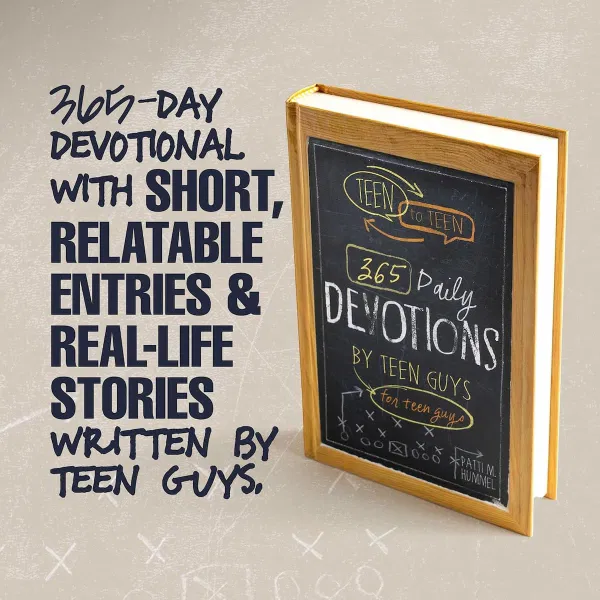 365-DAY
DEVOTIONAL
WITH SHORT,
RELATABLE
ENTRIES &
REAL-LIFE
STORIES
WRITTEN BY
TEEN GUYS.
TEEN
to TEEN
365 Daily
DEVOTIONS
BY TEEN GUYS
for teen guys
PATTI M.
HUMMEL